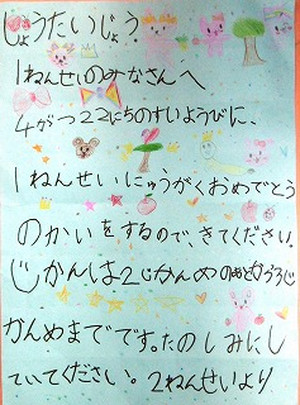 しょうたいじょう
1ねんせいのみなさんへ
4がつ22にちのすいようびに、
1ねんせいにゅうがくおめでとう
のかいをするので、きてください。
じかんは2じかんめのあとから3じ
かんめまでです。たのしみにし
ていてください。2ねんせいより